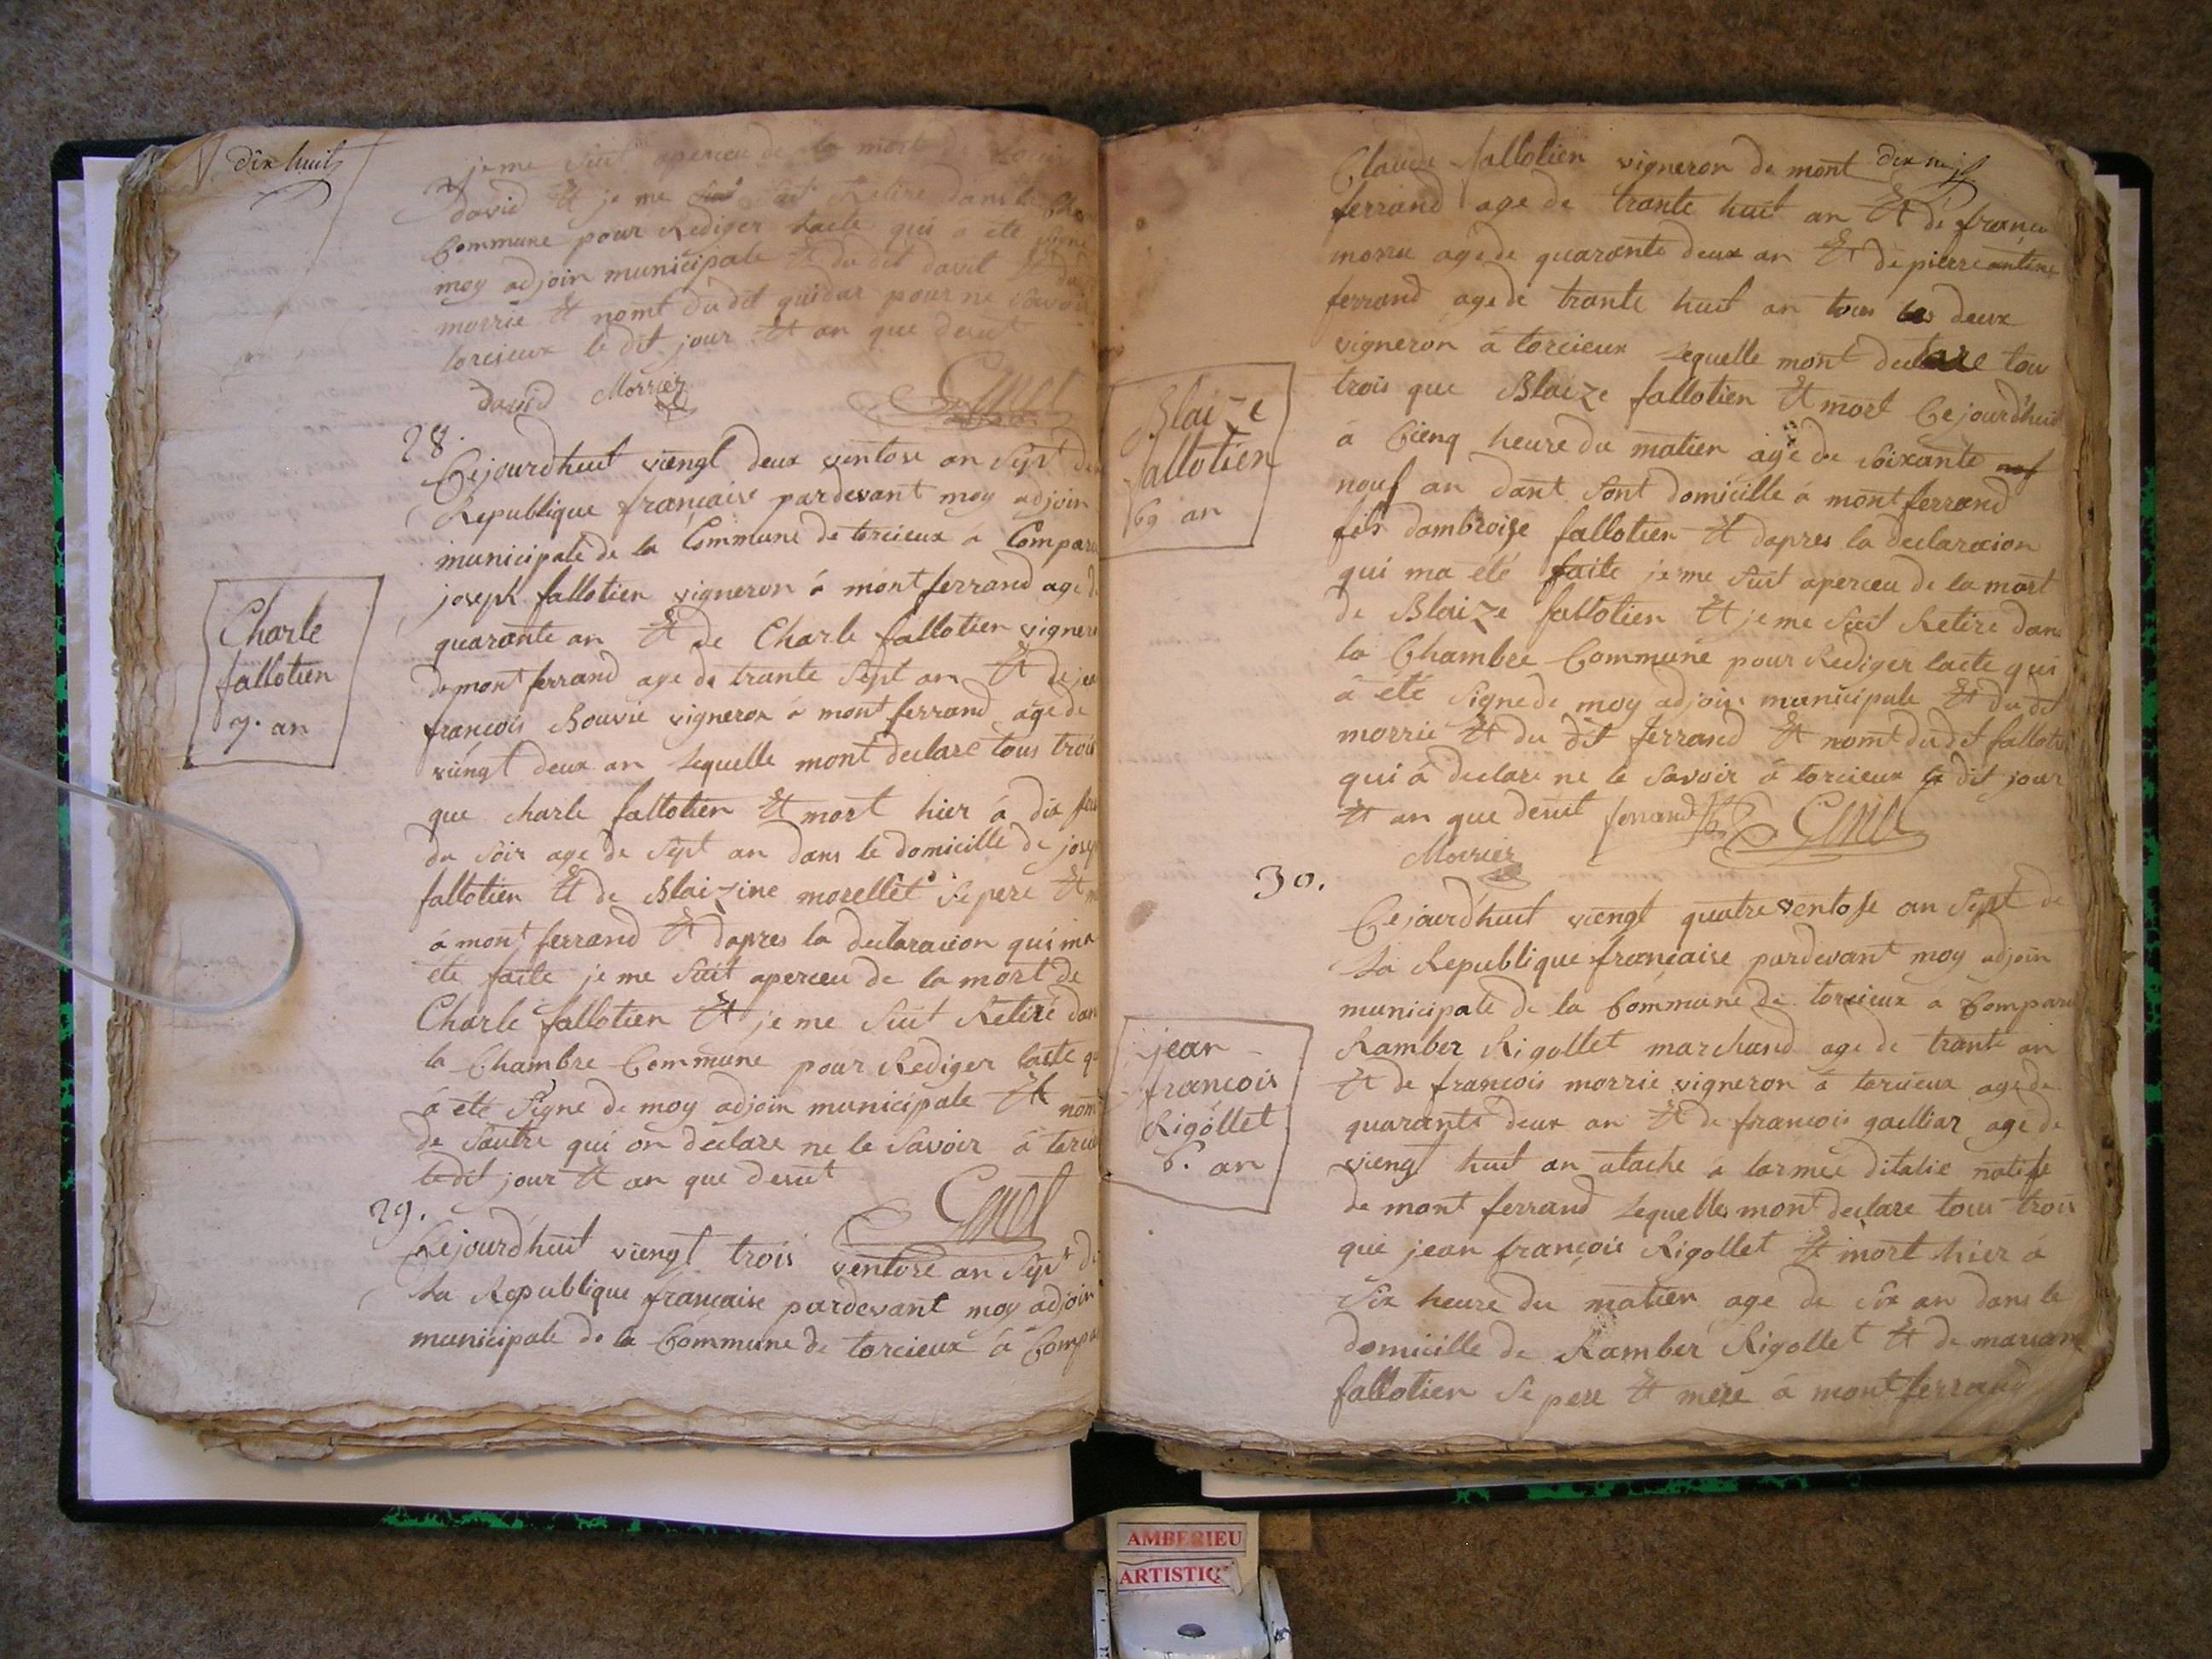 dix huit
je me suit aperceu de la mort de
david Et je me suit Retire dans la
Commune pour Rediger lacte qui a ete signe
moy adjoin municipale Et du dit david Et du
morrie Et nomt du dit guidar pour ne savoir
torcieux le dit jour Et an que desut
david Morrier
28.
Cejourdhuit viengt deux ventose an Sept de
Republique francaise pardevant moy adjoin
municipale de la Commune de torcieux a Comparu
joseph fallotien vigneron a montferrand age de
quarante an Et de Charle fallotien vignero
de montferrand age de trante Sept an Et de jea
francois Bouvie vigneron a mont ferrand age de
viengt deux an Lequelle mont declare tous trois
que charle fallotien Et mort hier a dix heu
du soir age de sept an dans le domicille de josep
fallotien Et de Blaizine morellet se pere Et m
a mont ferrand Et dapres la declaracion qui ma
ete faite je me suit aperceu de la mort de
Charle fallotien Et je me suit Retire dan
la Chambre Commune pour Rediger lacte qu
a ete signe de moy adjoin municipale Et nom
de sautre qui on declare ne le savoir a torcieu
ledit jour Et an que desut
29.
Cejourdhuit viengt trois ventose an Sept de
La Republique francaise pardevant moy adjoin
municipale de la Commune de torcieux a Compa
Charle
fallotien
7. an
dix neuf
Claude fallotien vigneron de mont
ferrand age de trante huit an Et de francoi
morrie age de quarante deux an Et de pierre antoine
ferrand age de trante huit an tous les deux
vigneron a torcieux Lequelle mont declare tou
trois que Blaize fallotien Et mort Cejourdhuit
a Cienq heure du matien age de soixante nof
nouf an dant sont domicille a montferrand
fils dambroise fallotien Et dapres la declaracion
qui ma ete faite je me suit aperceu de la mort
de Blaize fallotien Et je me suit Retire dans
la Chambre Commune pour Rediger lacte qui
a ete signe de moy adjoin municipale Et du dit
morrie Et du dit ferrand Et nomt du dit falloti
qui a declare ne le savoir a torcieux le dit jour
Et an que desut ferrand
Morrier
Blaize
fallotien
69 an
30.
Cejourdhuit viengt quatre ventose an Sept de
La Republique francaise pardevant moy adjoin
municipale de la Commune de torcieux a Comparu
Ramber Rigollet marchand age de trante an
Et de francois morrie vigneron a torcieux age de
quarante deux an Et de francois gaelliar age de
viengt huit an atache a larmee ditalie natife
de mont ferrand Lequelle mont declare tous trois
que jean francois Rigollet Et mort hier a
Six heure du matien age de six an dans le
domicille de Ramber Rigollet Et de mariane
fallotien se pere Et mere a montferrand
jean
francois
Rigollet
6. an
AMBERIEU
ARTISTIQ